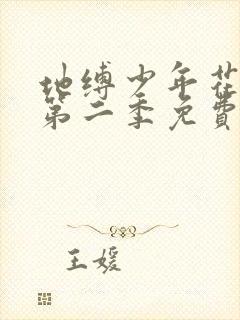 地缚少年花
第二季免費
王媛